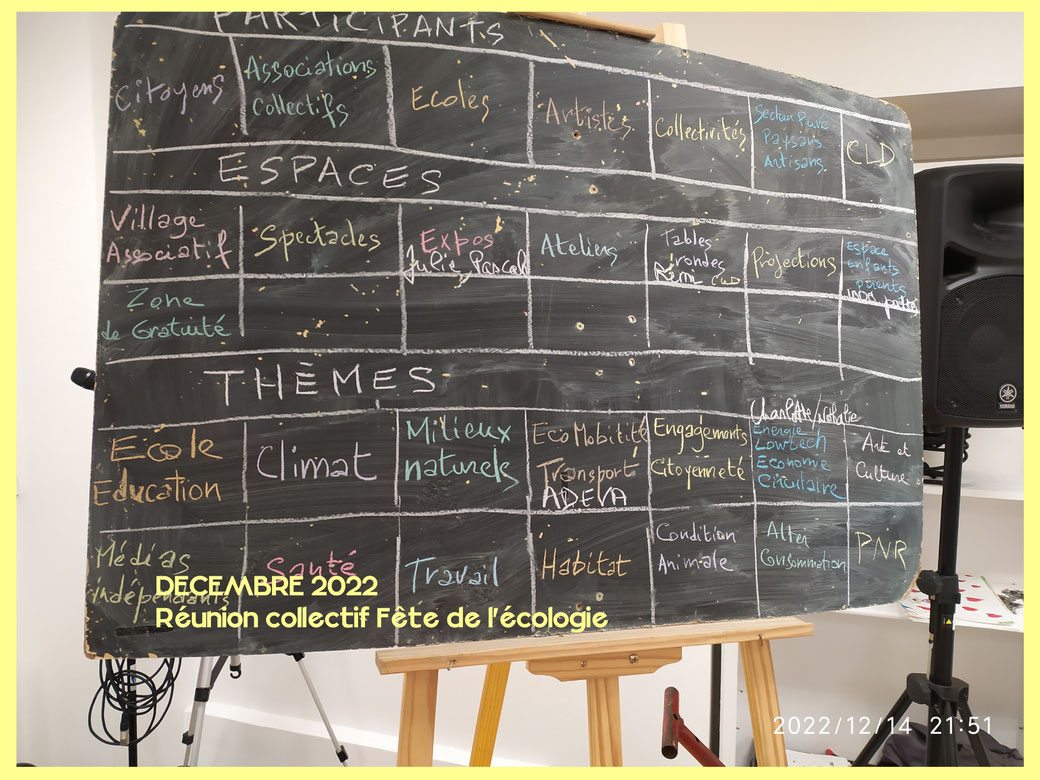 PARTICIPANTS
Citoyens
Associations
Collectifs
Ecoles
Artistes
Collectivités
Paysans
Artisans
CLD
ESPACES
Village
Associatif
Spectacles
Expos
Julie, Pascal
Ateliers
Tables
rondes
Rémi CLD
Projections
Espace
Enfants
parents
Zone
de Gratuité
THÈMES
Ecole
Education
Climat
Milieux
naturels
Eco Mobilité
Transport
ADEVA
Engagements
Citoyenneté
Charlotte/
Energie
Lowtech
Economie
Circulaire
Art et
Culture
Médias
indépendants
Santé
Travail
Habitat
Condition
Animale
Alter
Consommation
PNR
DECEMBRE 2022
Réunion collectif Fête de l'écologie
YAMAHA
2022/12/14 21:51